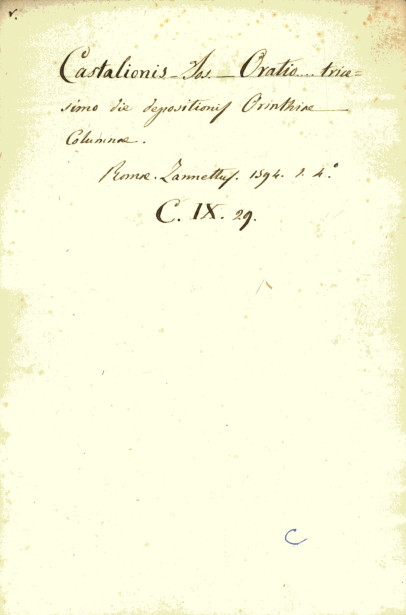 v.
Castalionis - Jos. - Oratio.... trice=
simo die depositionis Orinthiae
Columnae.
Romae. Zannettus. 1594. 1. 4.°
C. IX. 29.
C